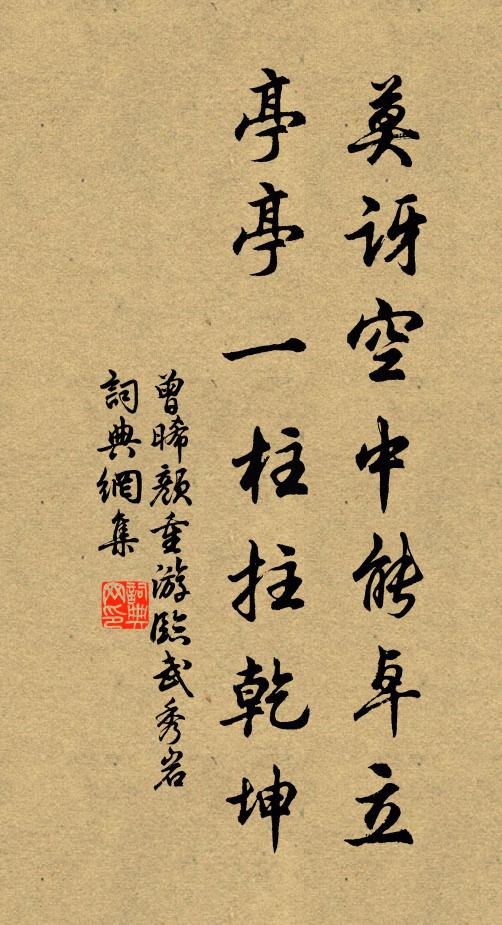 莫訝空中能卓立
亭亭一柱拄乾坤
曾晞顏重游臨武秀岩
詞典網集
詞典
网印